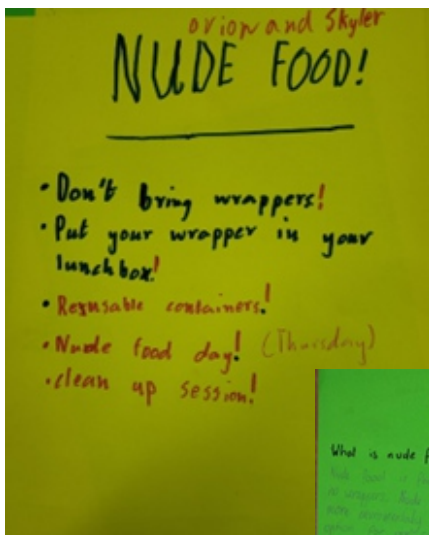 orion and Skyler
NUDE FOOD!
• Don't bring wrappers!
• Put your wrapper in your
lunchbox!
• Reausable containers!
• Nude food day! (Thursday)
• clean up session!
What is nude f